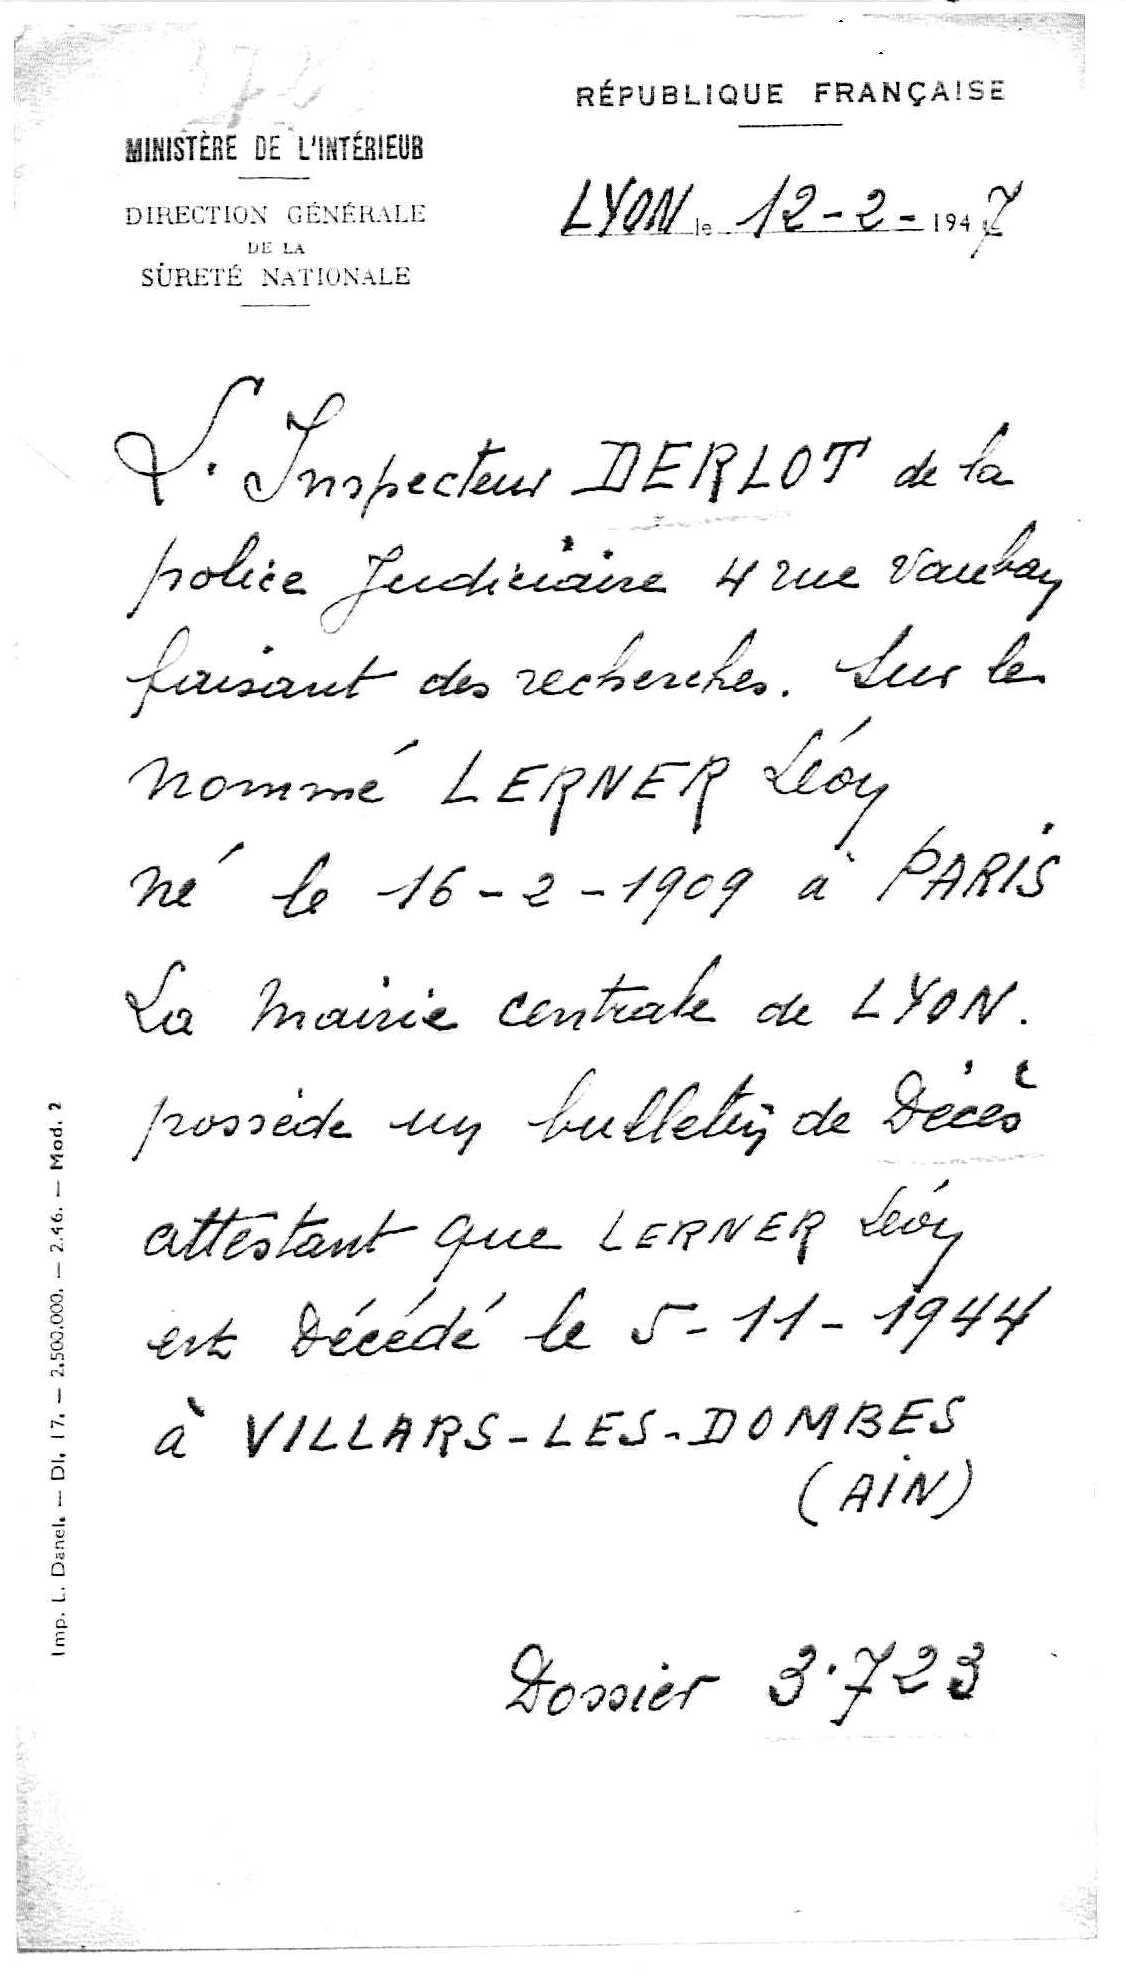 RÉPUBLIQUE FRANÇAISE
MINISTÈRE DE L'INTÉRIEUR
DIRECTION GÉNÉRALE
DE LA
SÛRETÉ NATIONALE
LYON le 12-2-1947
L'Inspecteur DERLOT de la
police Judiciaire 4 rue Vauban
faisant des recherches. Sur le
nommé LERNER Léon
né le 16-2-1909 à PARIS
La Mairie centrale de LYON.
possède un bulletin de Décès
attestant que LERNER Léon
est Décédé le 5-11-1944
à VILLARS-LES-DOMBES
(AIN)
Dossier 3.723
Imp. L. Danel. — DI. 17. — 2.500.000. — 2.46. — Mod. 2